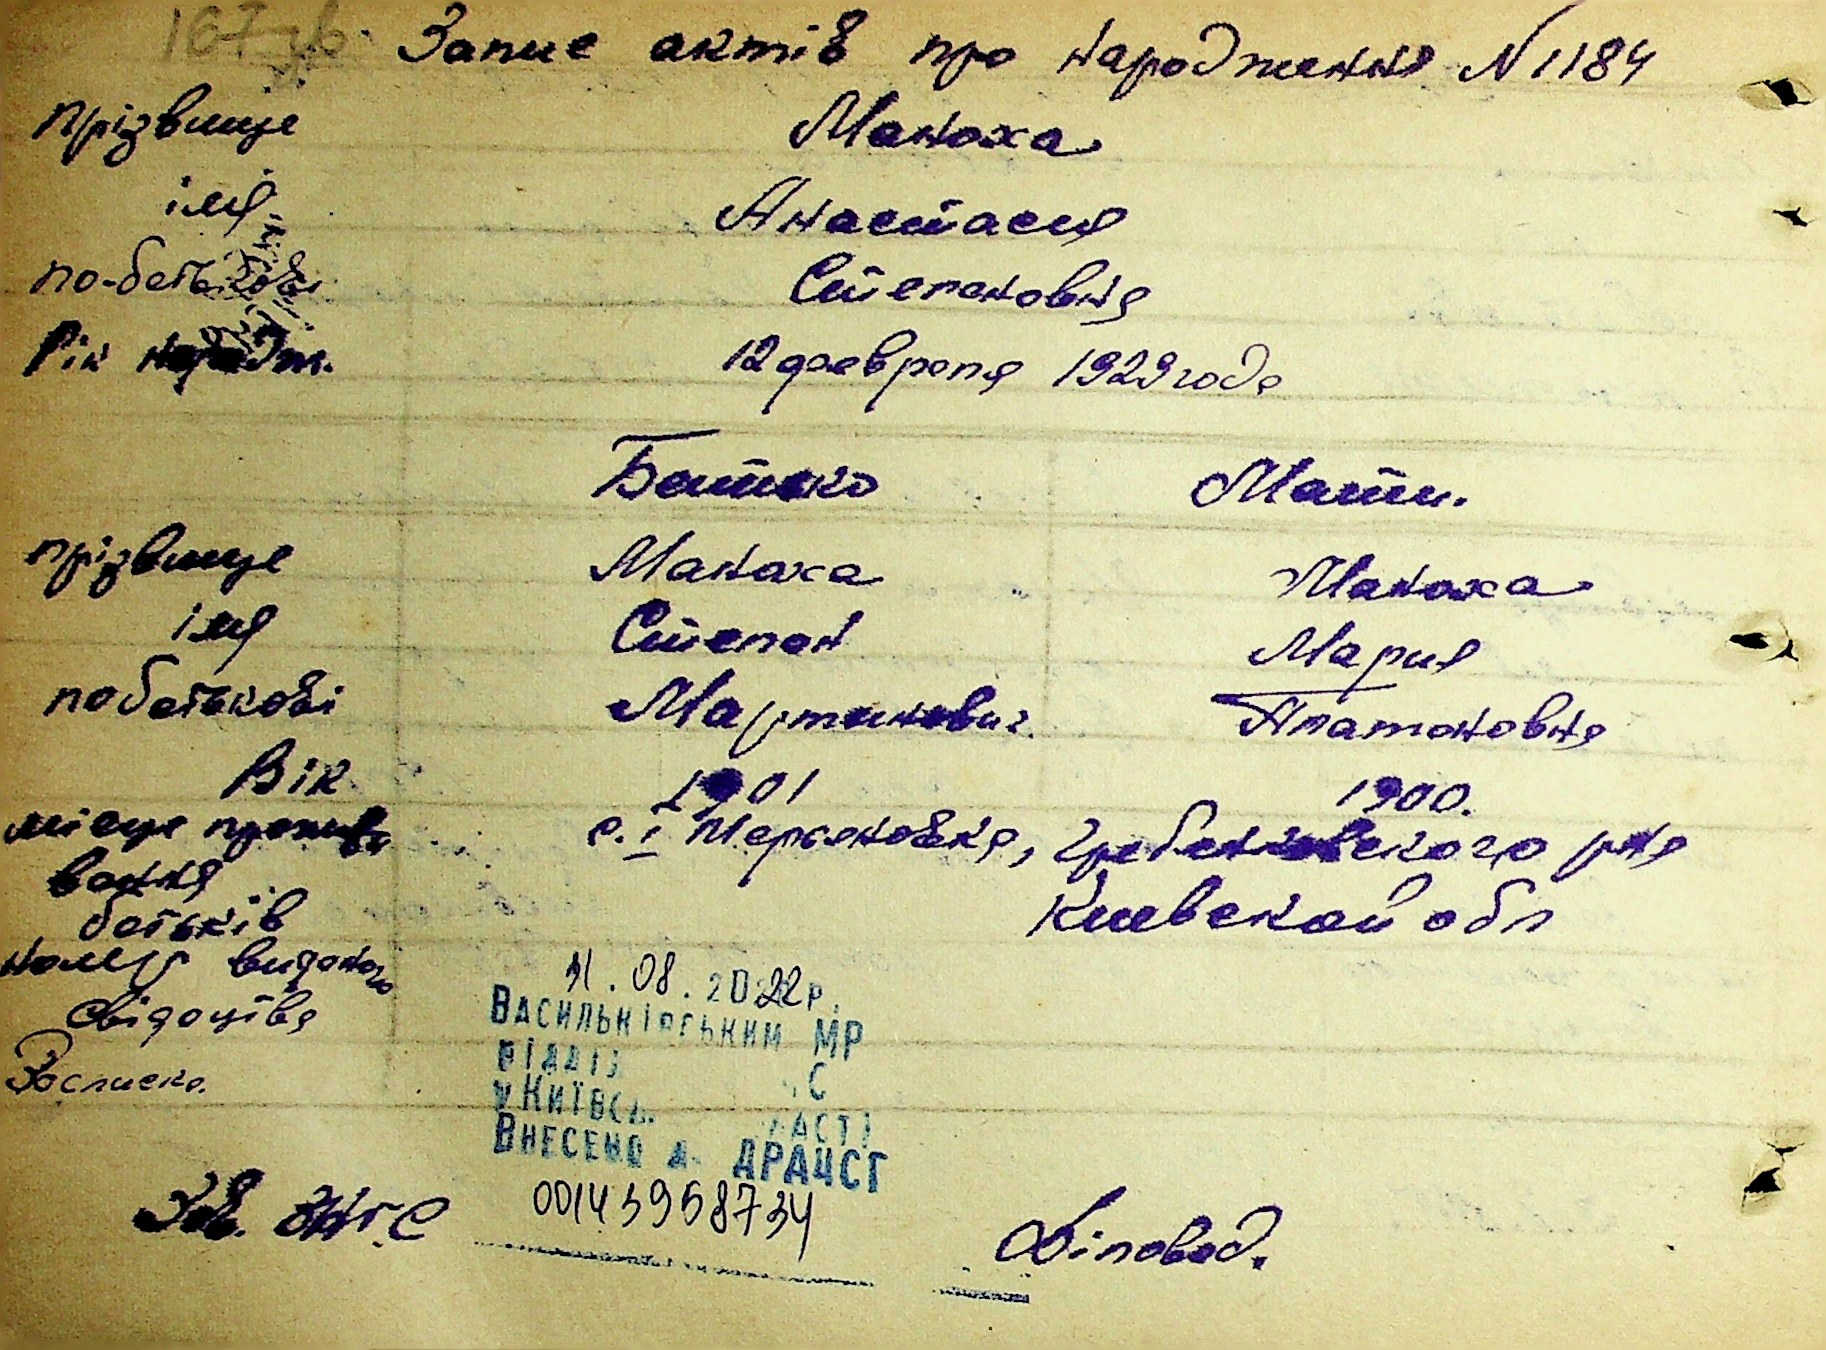 167 зв.
Запис актів про народження N 1184
прізвище Маноха
імя Анастасия
по-батькові Степановня
Рік народж. 12 февраля 1929 года
Батько Мати.
прізвище Маноха Маноха
імя Степан Мария
по батькові Мартинович. Платоновня
Вік 1901 1900.
місце прожива с. І Марьяновка, Гребенковского рня
вання Киевской обл
батьків
номер виданого
свідоцтва
31.08.2022р.
Васильківським МР
відділ С
у Київс ласті
Внесено д ДРАЦСГ
00143958734
Зав. ЗАГ.С Діловод.